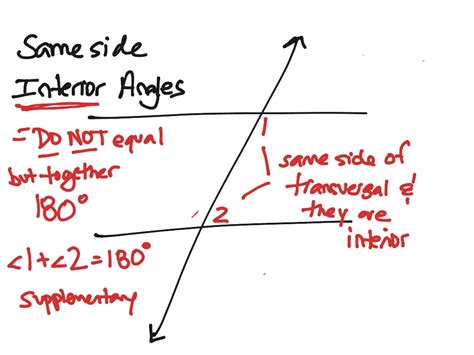 Same side
Interior Angles
= DO NOT equal
but together
180°
∠1+∠2=180°
supplementary
1
2
same side of
transversal &
they are
interior